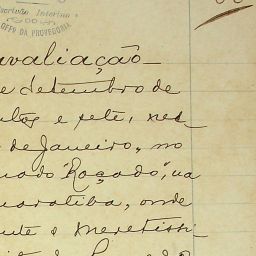 Escrivão Interino
OFFO DA PROVEDORIA
avaliação
e Setembro de
ntos e sete, nes
de Janeiro, no
nado "Roçado", na
uaratiba, onde
nte o Meretissi